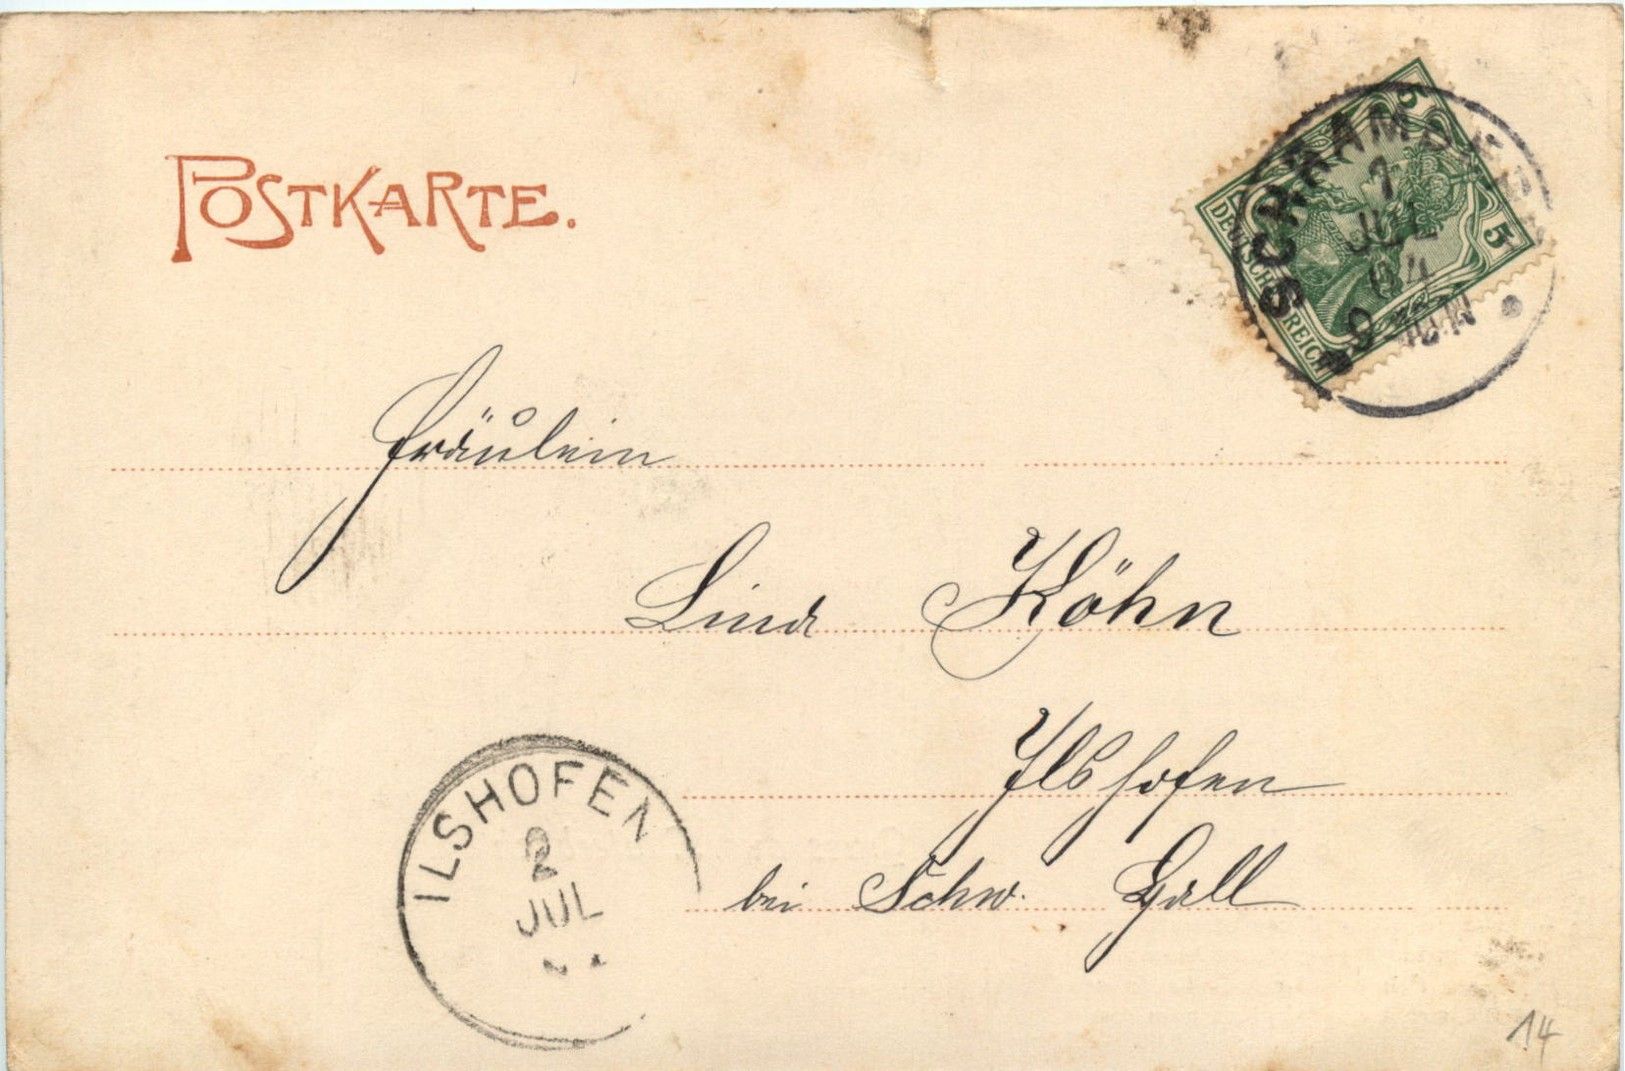 POSTKARTE.
5
5
DEUTSCHES REICH
SCHRAMBERG
1
JUL
04
9
Fräulein
Lina Köhn
Ilshofen
bei Schw. Hall
ILSHOFEN
2
JUL
14